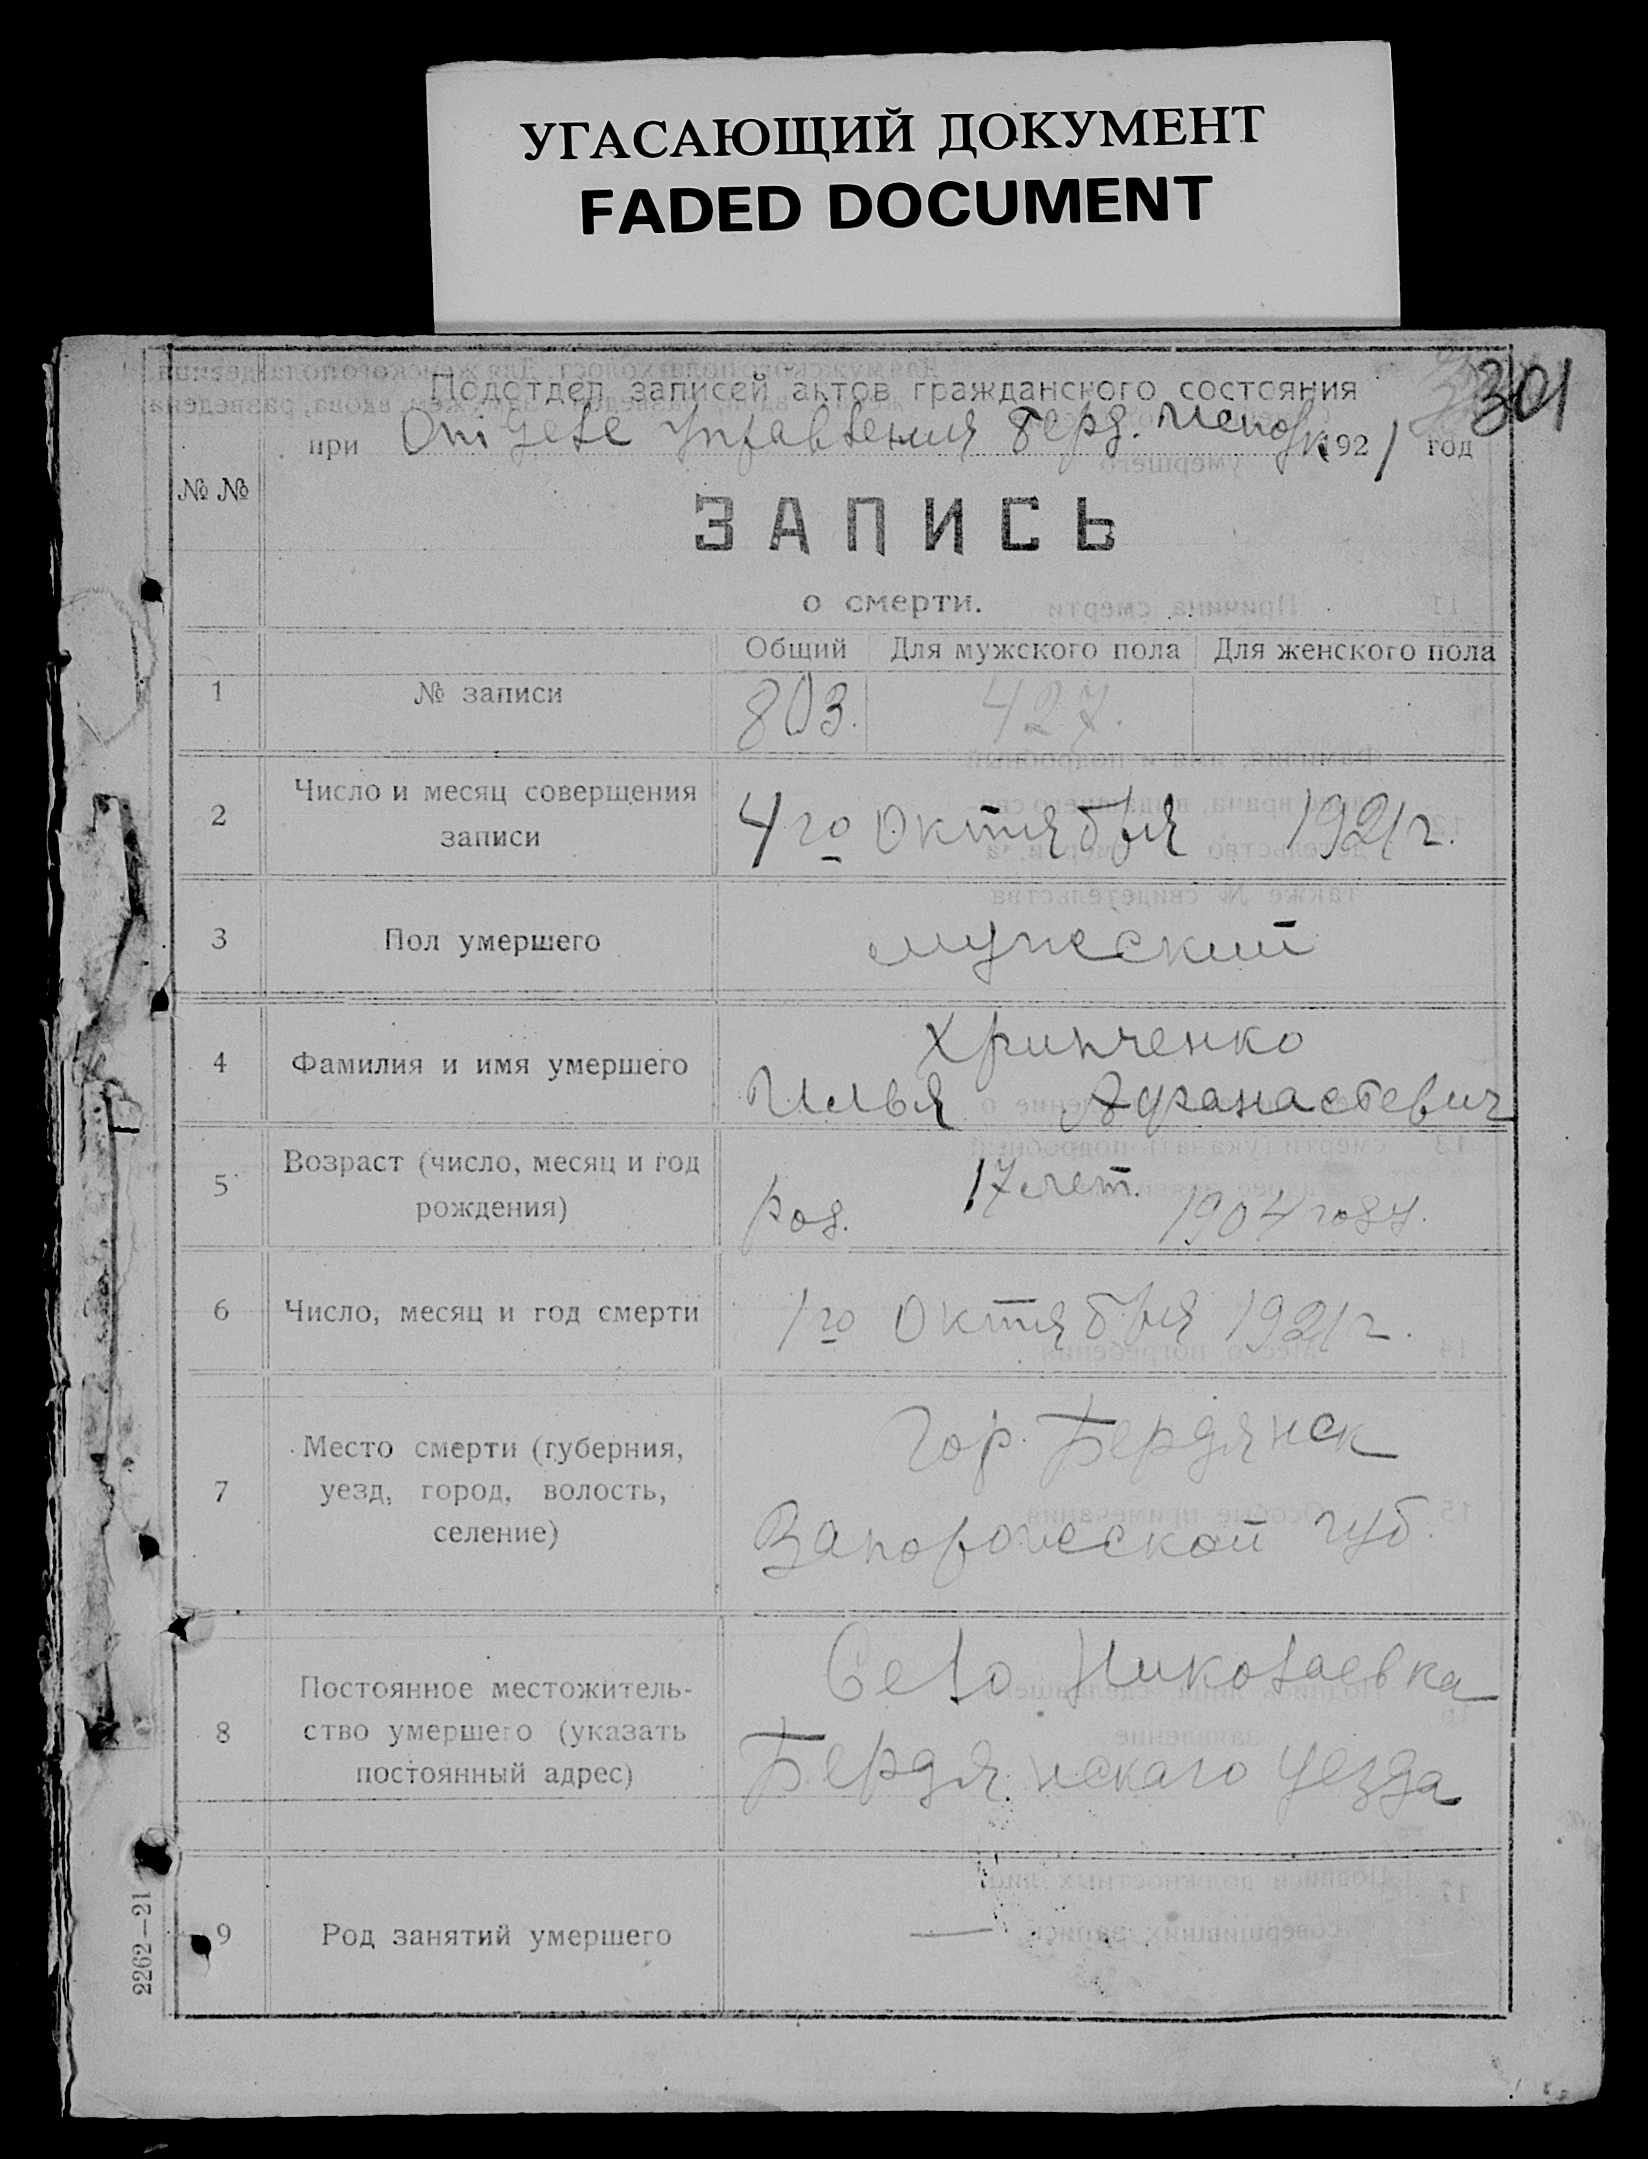 УГАСАЮЩИЙ ДОКУМЕНТ
FADED DOCUMENT
301
Подотдел записей актов гражданского состояния
при Отделе Управления Берд. Исполк. 1921 год
№ №
ЗАПИСЬ
о смерти.
Общий Для мужского пола Для женского пола
1 № записи 803. 427.
2 Число и месяц совершения записи 4го Октября 1921 г.
3 Пол умершего мужеский
4 Фамилия и имя умершего Хрипченко
Илья Афанасьевич
5 Возраст (число, месяц и год рождения) 17 лет.
род. 1904 году.
6 Число, месяц и год смерти 1го Октября 1921 г.
7 Место смерти (губерния, уезд, город, волость, селение) Гор. Бердянск
Запорожской губ.
8 Постоянное местожитель-
ство умершего (указать
постоянный адрес) Село Николаевка
Бердянскаго уезда
9 Род занятий умершего —
2262—21